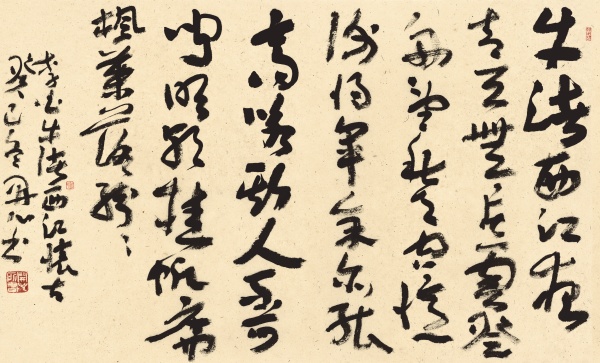 牛渚西江夜
青天無片雲登
舟望秋月空憶
謝將軍余亦能
高咏斯人不可
聞明朝挂帆席
楓葉落紛〻
李白牛渚西江懷古
癸巳冬書